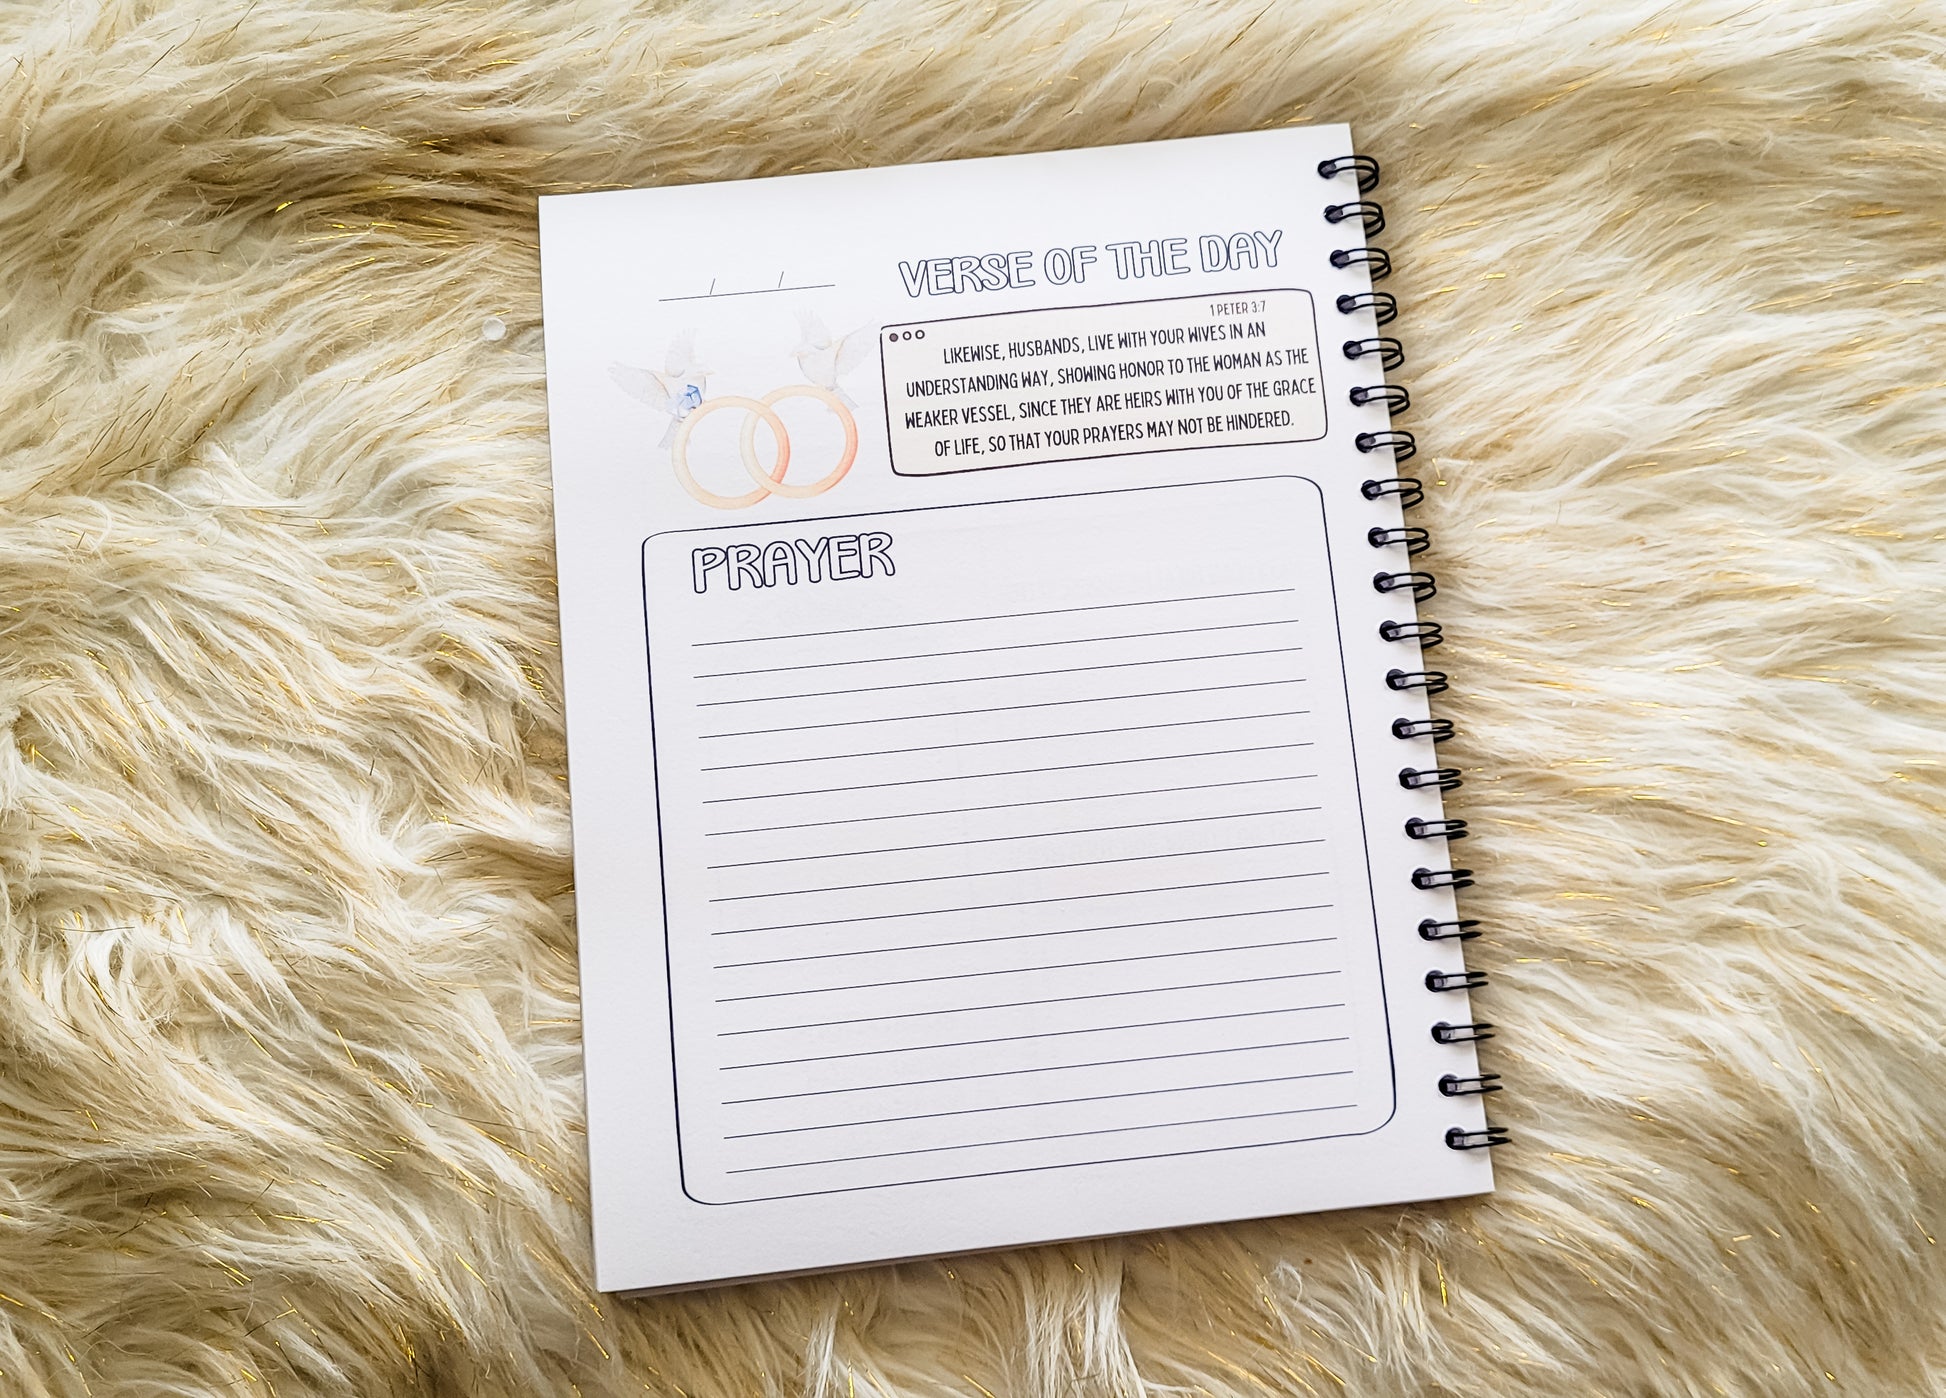 / /
VERSE OF THE DAY
1 PETER 3:7
LIKEWISE, HUSBANDS, LIVE WITH YOUR WIVES IN AN
UNDERSTANDING WAY, SHOWING HONOR TO THE WOMAN AS THE
WEAKER VESSEL, SINCE THEY ARE HEIRS WITH YOU OF THE GRACE
OF LIFE, SO THAT YOUR PRAYERS MAY NOT BE HINDERED.
PRAYER